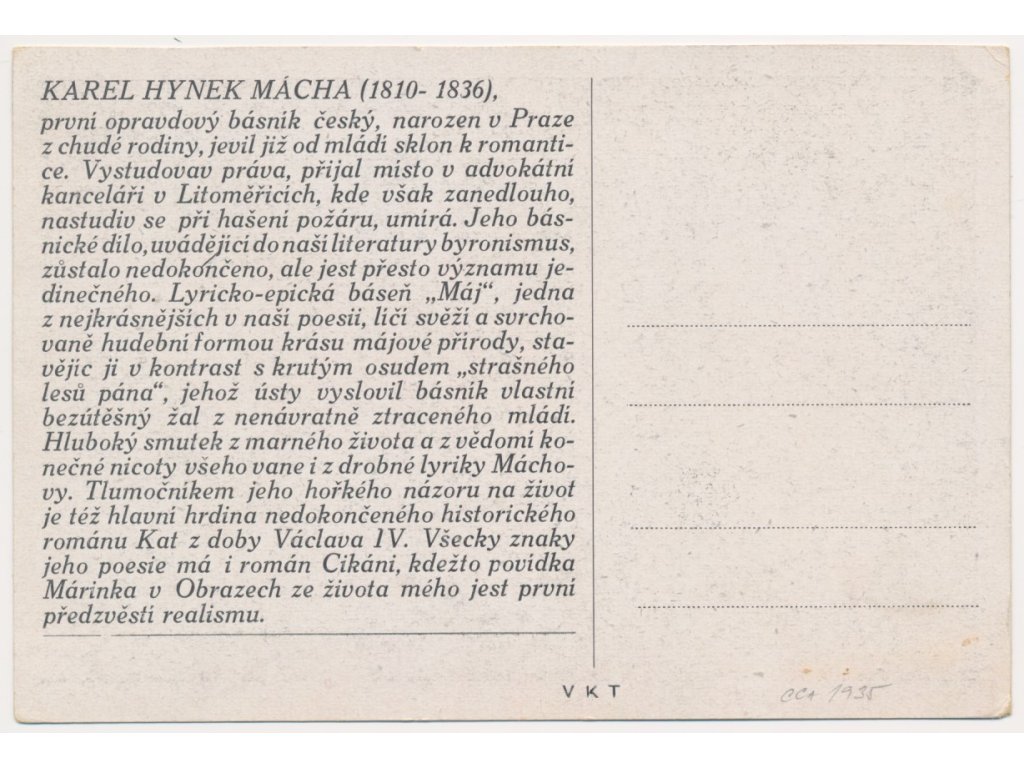 KAREL HYNEK MÁCHA (1810- 1836),
první opravdový básník český, narozen v Praze
z chudé rodiny, jevil již od mládí sklon k romanti-
ce. Vystudovav práva, přijal místo v advokátní
kanceláři v Litoměřicích, kde však zanedlouho,
nastudiv se při hašení požáru, umírá. Jeho bás-
nické dílo, uvádějící do naší literatury byronismus,
zůstalo nedokončeno, ale jest přesto významu je-
dinečného. Lyricko-epická báseň „Máj“, jedna
z nejkrásnějších v naší poesii, líčí svěží a svrcho-
vaně hudební formou krásu májové přírody, sta-
vějíc ji v kontrast s krutým osudem „strašného
lesů pána“, jehož ústy vyslovil básník vlastní
bezútěšný žal z nenávratně ztraceného mládí.
Hluboký smutek z marného života a z vědomí ko-
nečné nicoty všeho vane i z drobné lyriky Mácho-
vy. Tlumočníkem jeho hořkého názoru na život
je též hlavní hrdina nedokončeného historického
románu Kat z doby Václava IV. Všecky znaky
jeho poesie má i román Cikáni, kdežto povídka
Márinka v Obrazech ze života mého jest první
předzvěstí realismu.
VKT
cca 1935